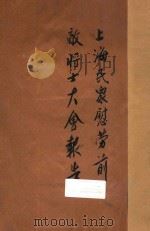 上海民众慰劳前
敌将士大会报告